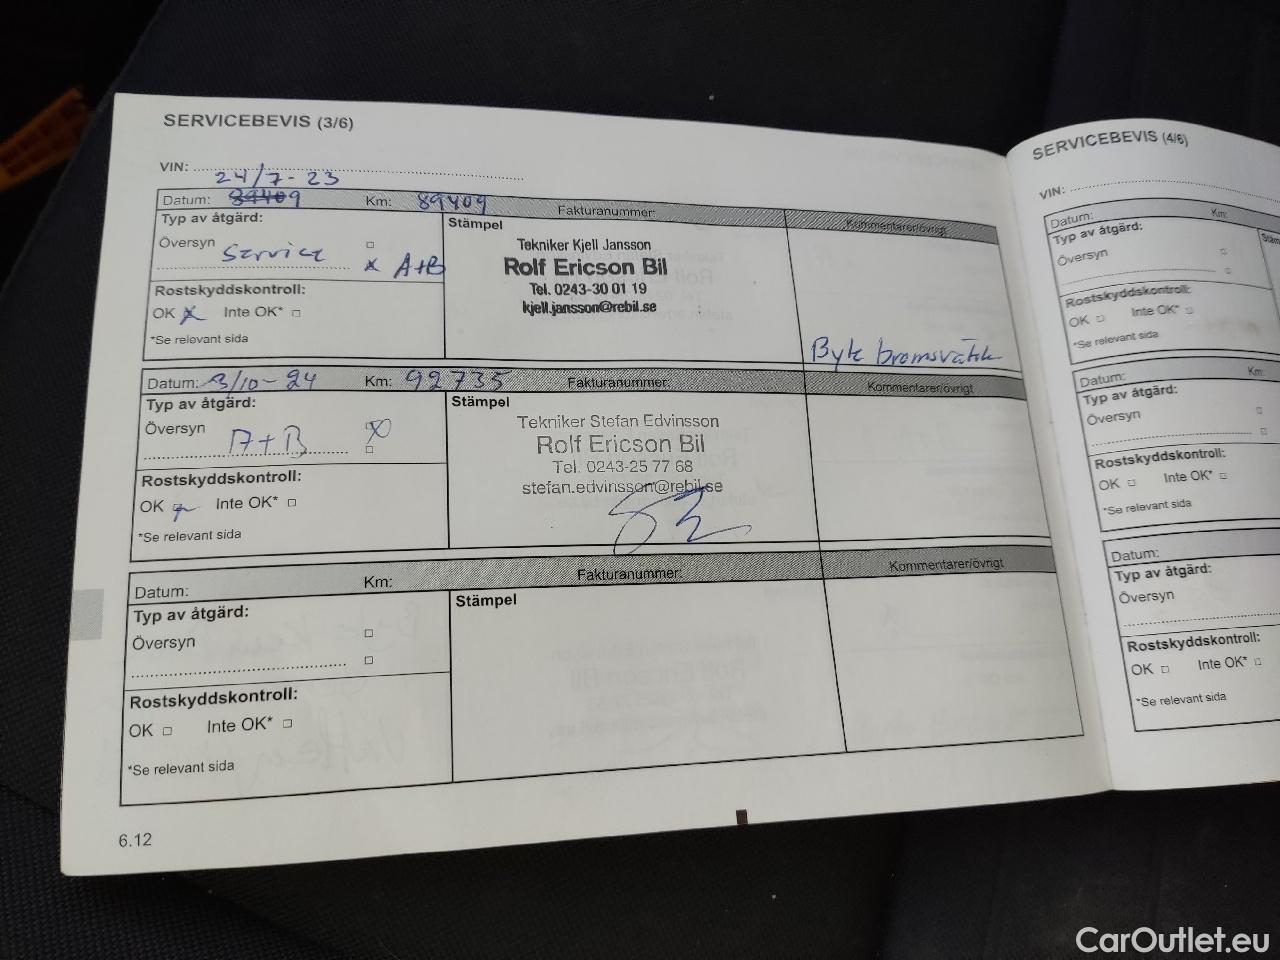 SERVICEBEVIS (3/6)
VIN:
24/7-23
Datum: 89409 Km: 89409 Fakturanummer: Kommentarer/övrigt
Typ av åtgärd: Stämpel
Översyn Service
A+B
Tekniker Kjell Jansson
Rolf Ericson Bil
Tel. 0243-30 01 19
kjell.jansson@rebil.se
Rostskyddskontroll:
OK x Inte OK*
*Se relevant sida
Byte bromsvätsk
Datum: 3/10-24 Km: 92735 Fakturanummer: Kommentarer/övrigt
Typ av åtgärd: Stämpel
Översyn A+B x
Tekniker Stefan Edvinsson
Rolf Ericson Bil
Tel. 0243-25 77 68
stefan.edvinsson@rebil.se
Rostskyddskontroll:
OK Inte OK*
*Se relevant sida
Datum: Km: Fakturanummer: Kommentarer/övrigt
Typ av åtgärd: Stämpel
Översyn
Rostskyddskontroll:
OK Inte OK*
*Se relevant sida
6.12
SERVICEBEVIS (4/6)
VIN:
Datum: Km:
Typ av åtgärd:
Översyn
Rostskyddskontroll:
OK Inte OK*
*Se relevant sida
Datum: Km:
Typ av åtgärd:
Översyn
Rostskyddskontroll:
OK Inte OK*
*Se relevant sida
Datum:
Typ av åtgärd:
Översyn
Rostskyddskontroll:
OK Inte OK*
*Se relevant sida
CarOutlet.eu